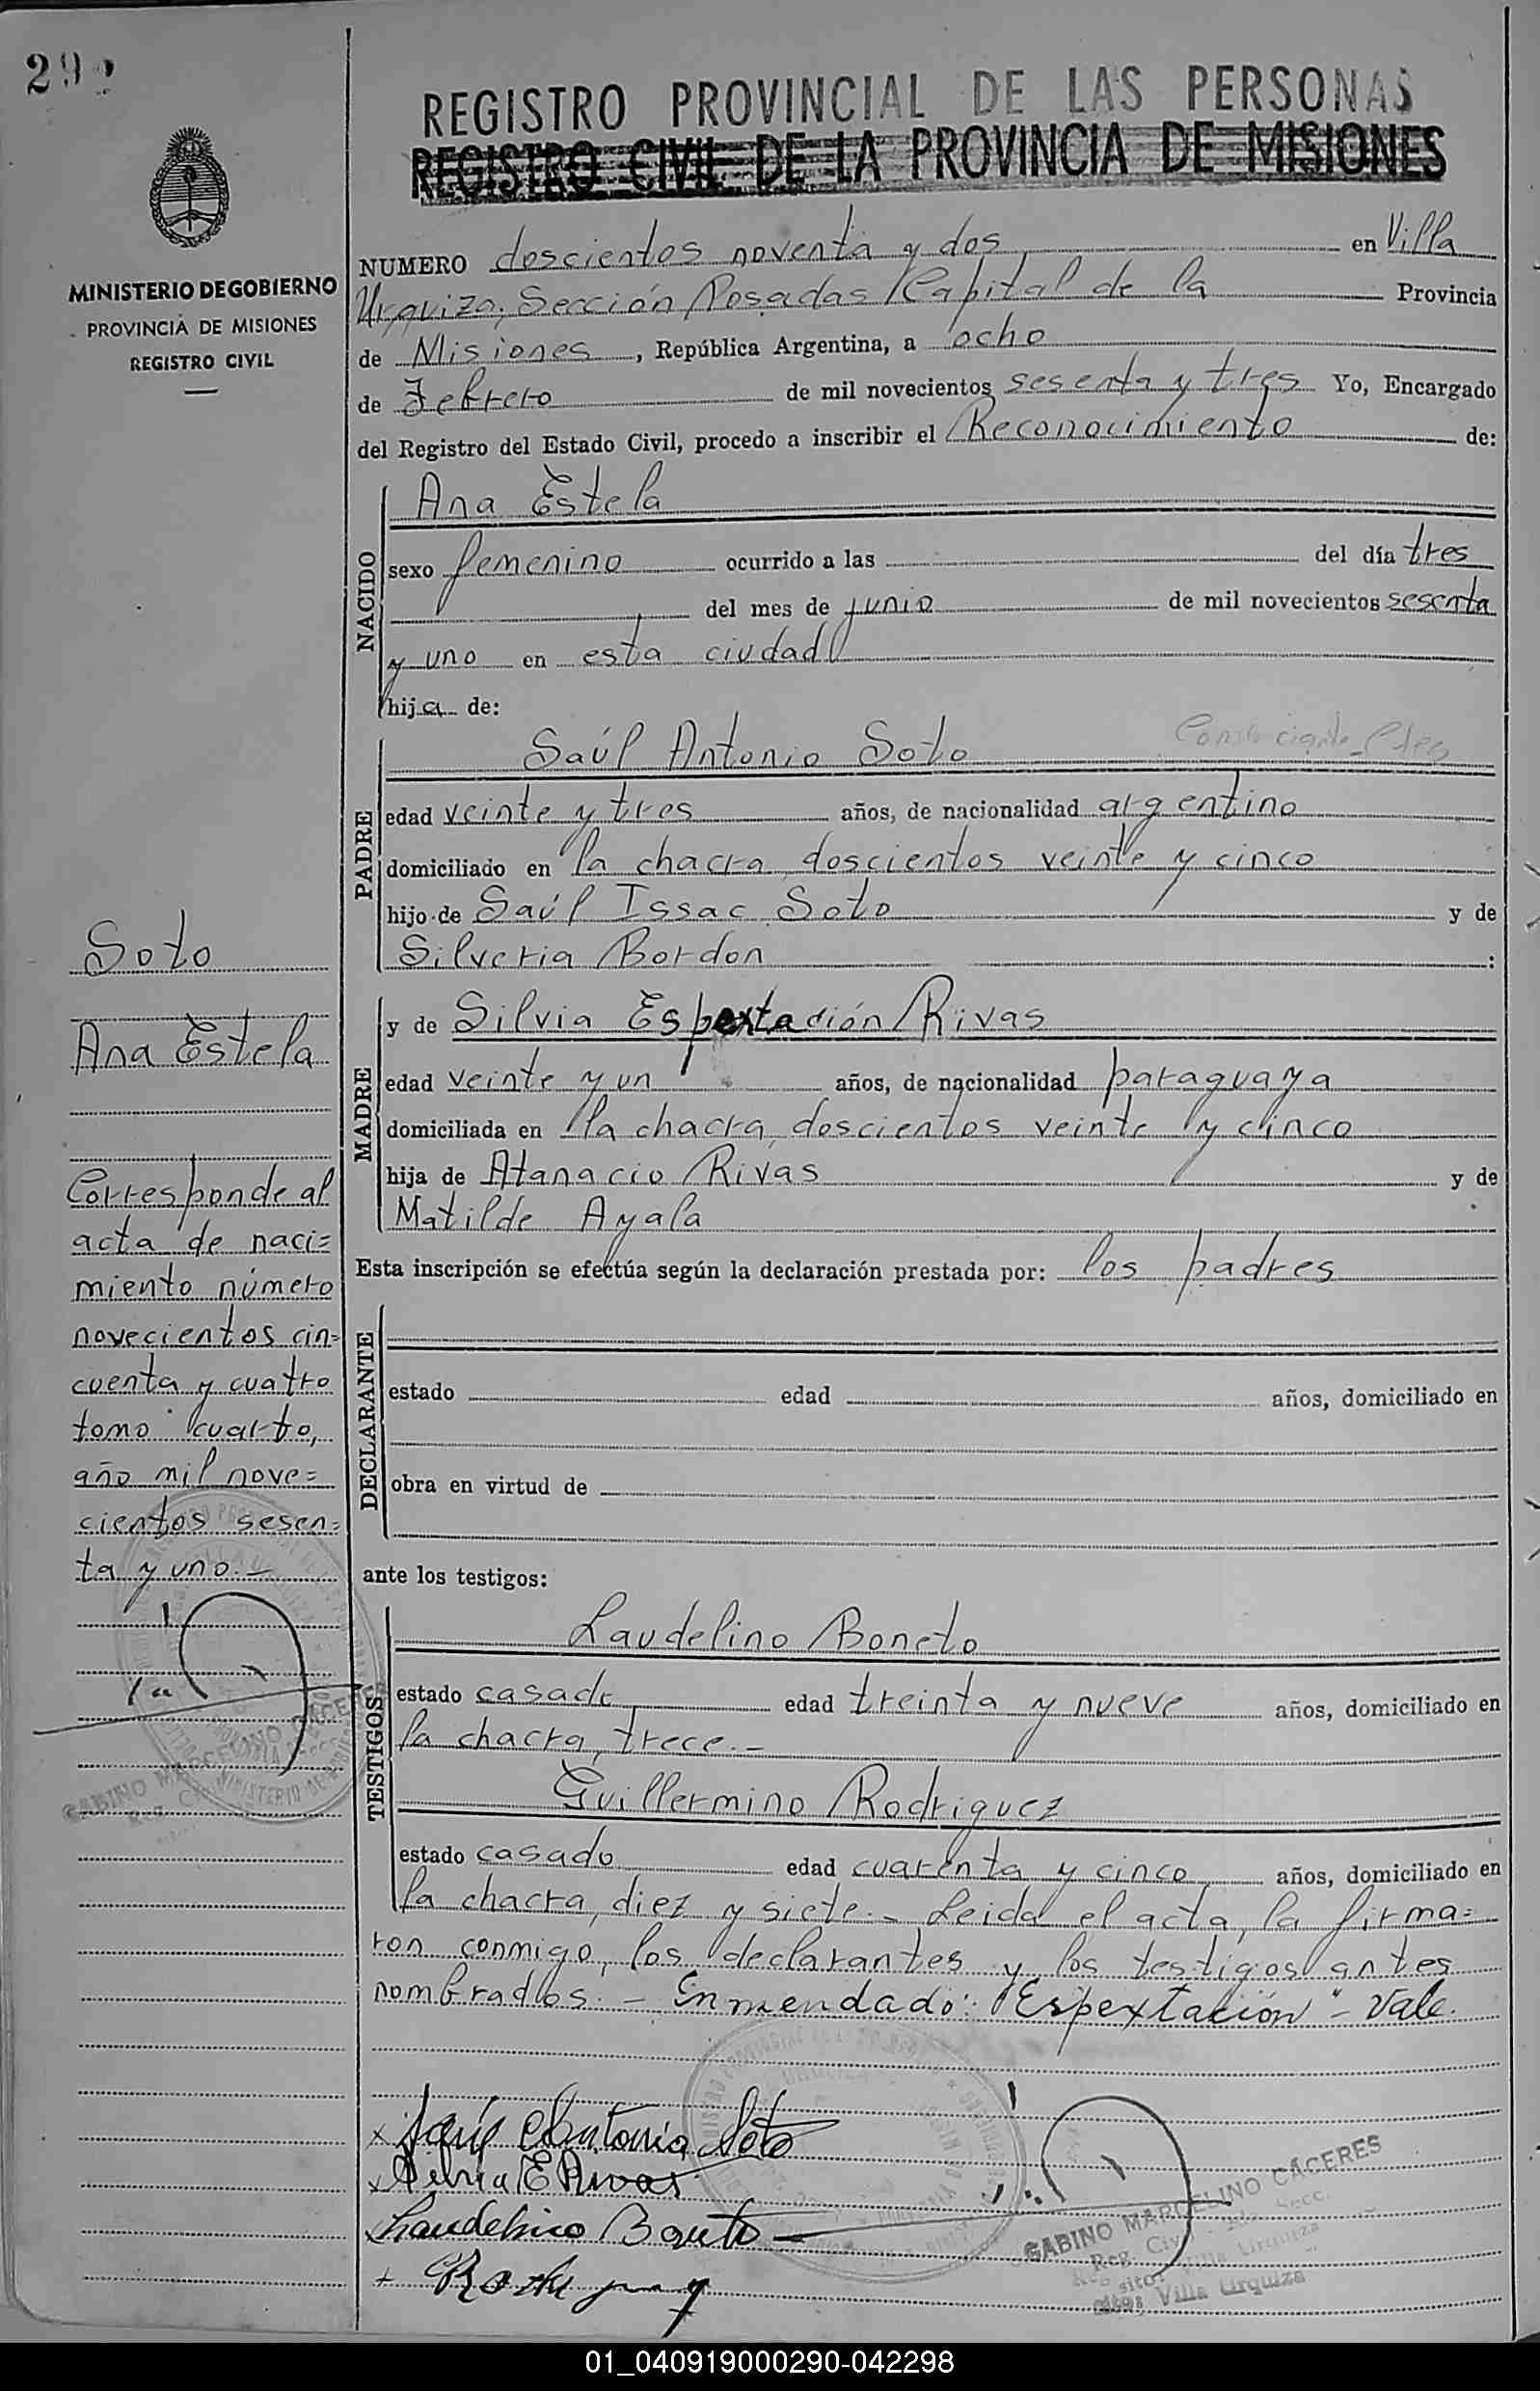 292
REGISTRO PROVINCIAL DE LAS PERSONAS
REGISTRO CIVIL DE LA PROVINCIA DE MISIONES
MINISTERIO DE GOBIERNO
PROVINCIA DE MISIONES
REGISTRO CIVIL
NUMERO doscientos noventa y dos en Villa
Urquiza, Sección Posadas Capital de la Provincia
de Misiones, República Argentina, a ocho
de Febrero de mil novecientos sesenta y tres Yo, Encargado
del Registro del Estado Civil, procedo a inscribir el Reconocimiento de:
NACIDO
Ana Estela
sexo femenino ocurrido a las del día tres
del mes de junio de mil novecientos sesenta
y uno en esta ciudad
hija de:
PADRE
Saúl Antonio Soto
edad veinte y tres años, de nacionalidad argentino
domiciliado en la chacra doscientos veinte y cinco
hijo de Saúl Issac Soto y de
Silveria Bordon :
MADRE
y de Silvia Espextación Rivas
edad veinte y un años, de nacionalidad paraguaya
domiciliada en la chacra, doscientos veinte y cinco
hija de Atanacio Rivas y de
Matilde Ayala
Esta inscripción se efectúa según la declaración prestada por: los padres
DECLARANTE
estado edad años, domiciliado en
obra en virtud de
ante los testigos:
TESTIGOS
Laudelino Boneto
estado casado edad treinta y nueve años, domiciliado en
la chacra, trece.-
Guillermino Rodriguez
estado casado edad cuarenta y cinco años, domiciliado en
la chacra, diez y siete.- Leida el acta, la firma=
ron conmigo, los declarantes y los testigos antes
nombrados.- Enmendado: "Espextación"- Vale.
Soto
Ana Estela
Corresponde al
acta de naci=
miento número
novecientos cin=
cuenta y cuatro
tomo cuarto,
año mil nove=
cientos sesen=
ta y uno.-
GABINO MARCELINO CACERES
Saúl Antonio Soto
Silvia E Rivas
Laudelino Boneto
GABINO MARCELINO CACERES
Villa Urquiza
01_040919000290-042298